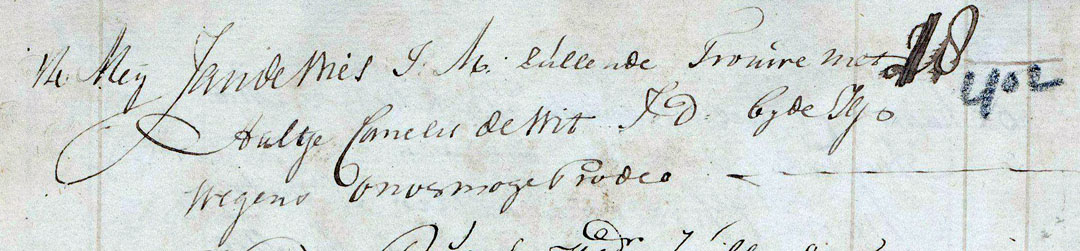 Meÿ Jan de Vries J. M: zullende Trouwe met 18 402
Aaltje Cornelis de Wit J:D. byde
Wegens onvermoge Prodeo